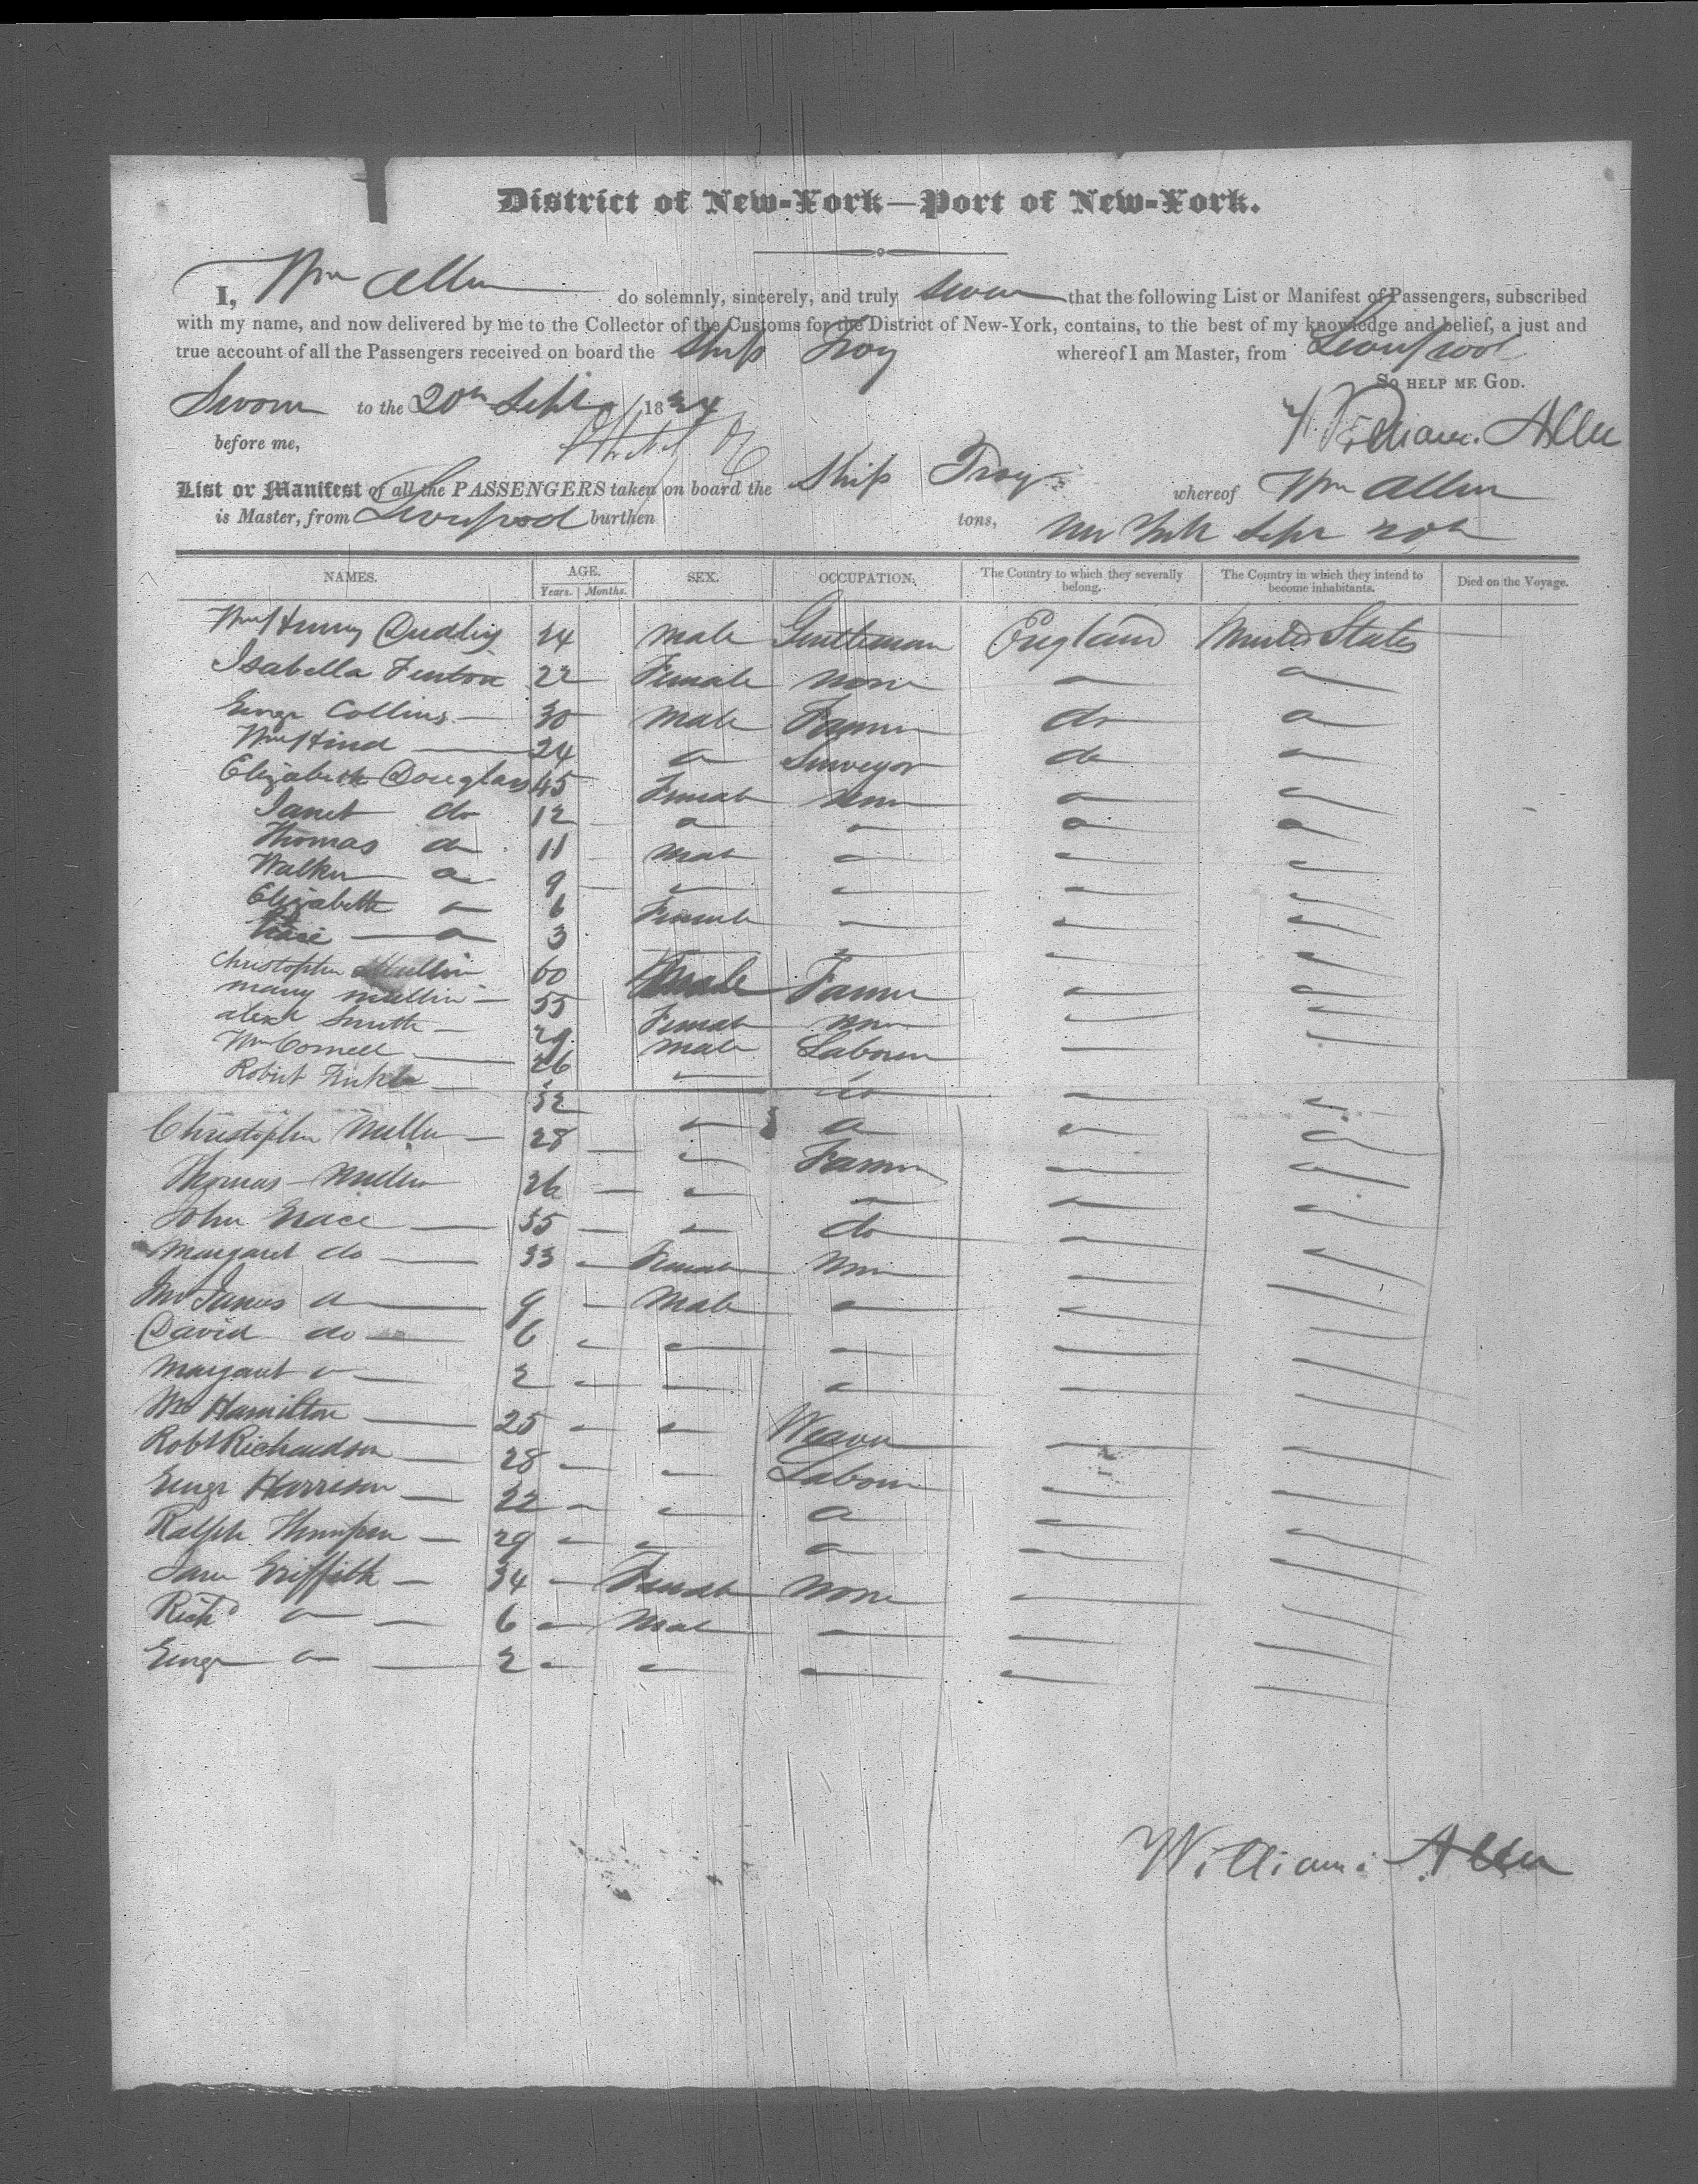 District of New-York—Port of New-York.
I, Wm Allen do solemnly, sincerely, and truly swear that the following List or Manifest of Passengers, subscribed
with my name, and now delivered by me to the Collector of the Customs for the District of New-York, contains, to the best of my knowledge and belief, a just and
true account of all the Passengers received on board the Ship Troy whereof I am Master, from Liverpool
So help me God.
Sworn to the 20th Sept 1834
William Allen
before me,
List or Manifest of all the PASSENGERS taken on board the Ship Troy whereof Wm Allen
is Master, from Liverpool burthen tons, New York Sept 20th
NAMES. AGE. SEX. OCCUPATION. The Country to which they severally belong. The Country in which they intend to become inhabitants. Died on the Voyage.
Years. Months.
Wm Henry Dudley 24 male Gentleman England United States
Isabella Fenton 22 Female none
George Collins 30 male Farmer do
Wm Hind 24 Surveyor do
Elizabeth Douglas 45 Female none
Janet do 12
Thomas do 11 male
Walker 9
Elizabeth 6 Female
3
Christopher Mullin 60 male Farmer
mary mullin 55 Female none
alexr Smith 29 male Labourer
Wm Cornell 26 do
Robert 32
Christopher Mullen 28 Farmer
Thomas Mullen 26
John Grace 35 do
Margaret do 33 Female none
James 9 male
David do 6
Margaret 2
Wm Hamilton 25 Weaver
Robt Richardson 28 Labour
George Harrison 22
Ralph Thompson 29
Jane Griffith 34 Female none
Richd 6 male
George 2
William Allen